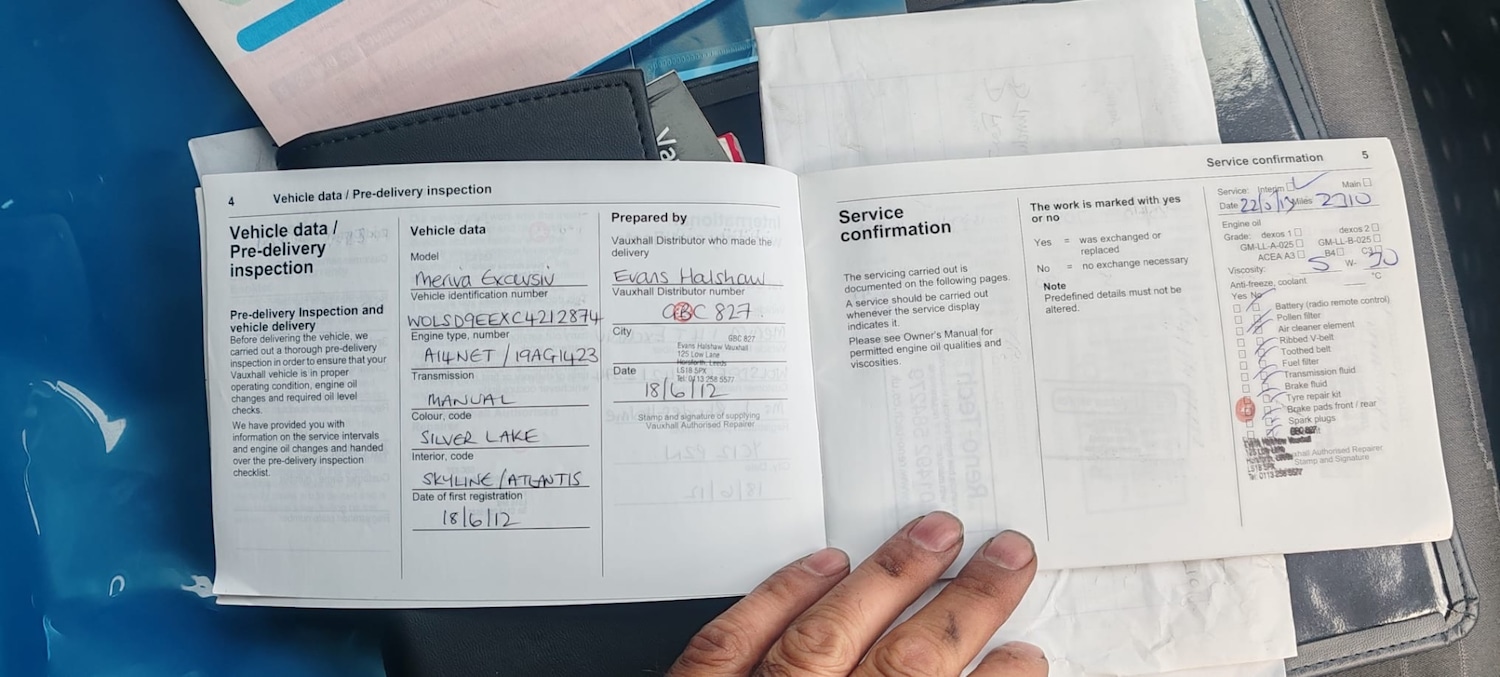 Va
4 Vehicle data / Pre-delivery inspection
Vehicle data /
Pre-delivery
inspection
Pre-delivery Inspection and
vehicle delivery
Before delivering the vehicle, we
carried out a thorough pre-delivery
inspection in order to ensure that your
Vauxhall vehicle is in proper
operating condition, engine oil
changes and required oil level
checks.
We have provided you with
information on the service intervals
and engine oil changes and handed
over the pre-delivery inspection
checklist.
Vehicle data
Model
Meriva Excvusiv
Vehicle identification number
WOLSD9EEXC4212874
Engine type, number
A14NET / 19AG1423
Transmission
MANUAL
Colour, code
SILVER LAKE
Interior, code
SKYLINE / ATLANTIS
Date of first registration
18/6/12
Prepared by
Vauxhall Distributor who made the
delivery
Evans Halshaw
Vauxhall Distributor number
GBC 827
City
GBC 827
Evans Halshaw Vauxhall
125 Low Lane
Horsforth, Leeds
LS18 5PX
Tel: 0113 258 5577
Date
18/6/12
Stamp and signature of supplying
Vauxhall Authorised Repairer
Service confirmation 5
Service
confirmation
The servicing carried out is
documented on the following pages.
A service should be carried out
whenever the service display
indicates it.
Please see Owner's Manual for
permitted engine oil qualities and
viscosities.
The work is marked with yes
or no
Yes = was exchanged or
replaced
No = no exchange necessary
Note
Predefined details must not be
altered.
Service: Interim Main
Date Miles 2710
Engine oil
Grade: dexos 1 dexos 2
GM-LL-A-025 GM-LL-B-025
ACEA A3 B4 C3
Viscosity: 5 W- 30
Anti-freeze, coolant °C
Yes No
Battery (radio remote control)
Pollen filter
Air cleaner element
Ribbed V-belt
Toothed belt
Fuel filter
Transmission fluid
Brake fluid
Tyre repair kit
Brake pads front / rear
Spark plugs
GBC 827
Evans Halshaw Vauxhall
125 Low Lane
LS18 5PX
Tel: 0113 258 5577
Vauxhall Authorised Repairer
Stamp and Signature